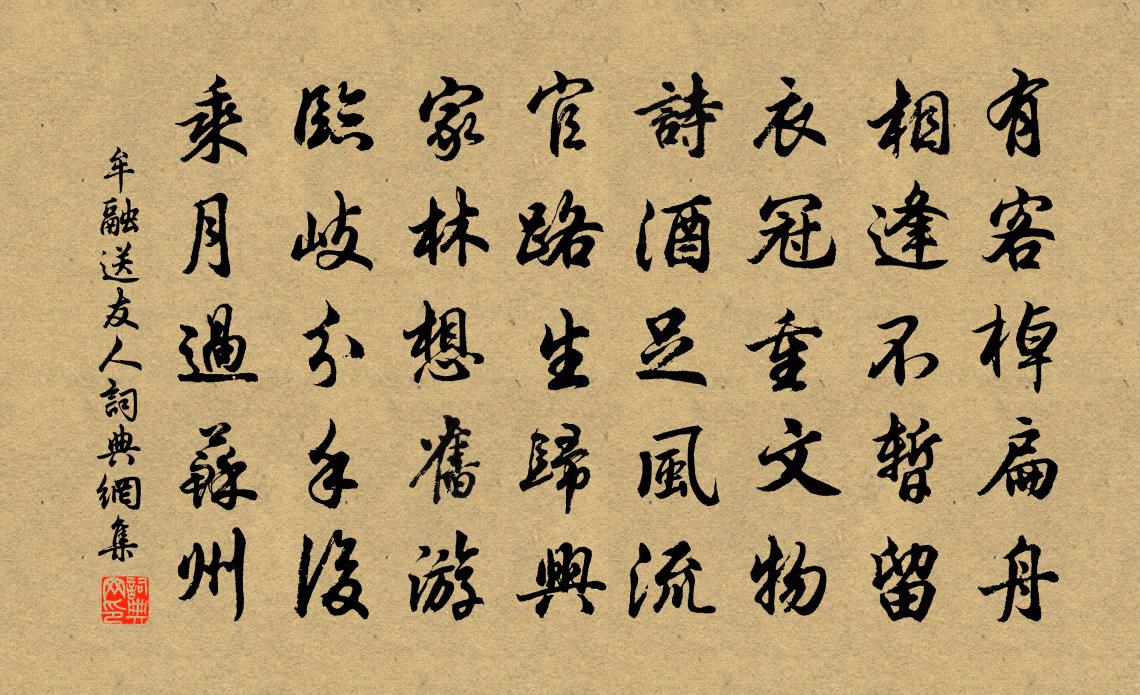 有客棹扁舟
相逢不暫留
衣冠重文物
詩酒足風流
官路生歸興
家林想舊游
臨岐分手後
乘月過蘇州
牟融送友人詞典網集
詞典
网印